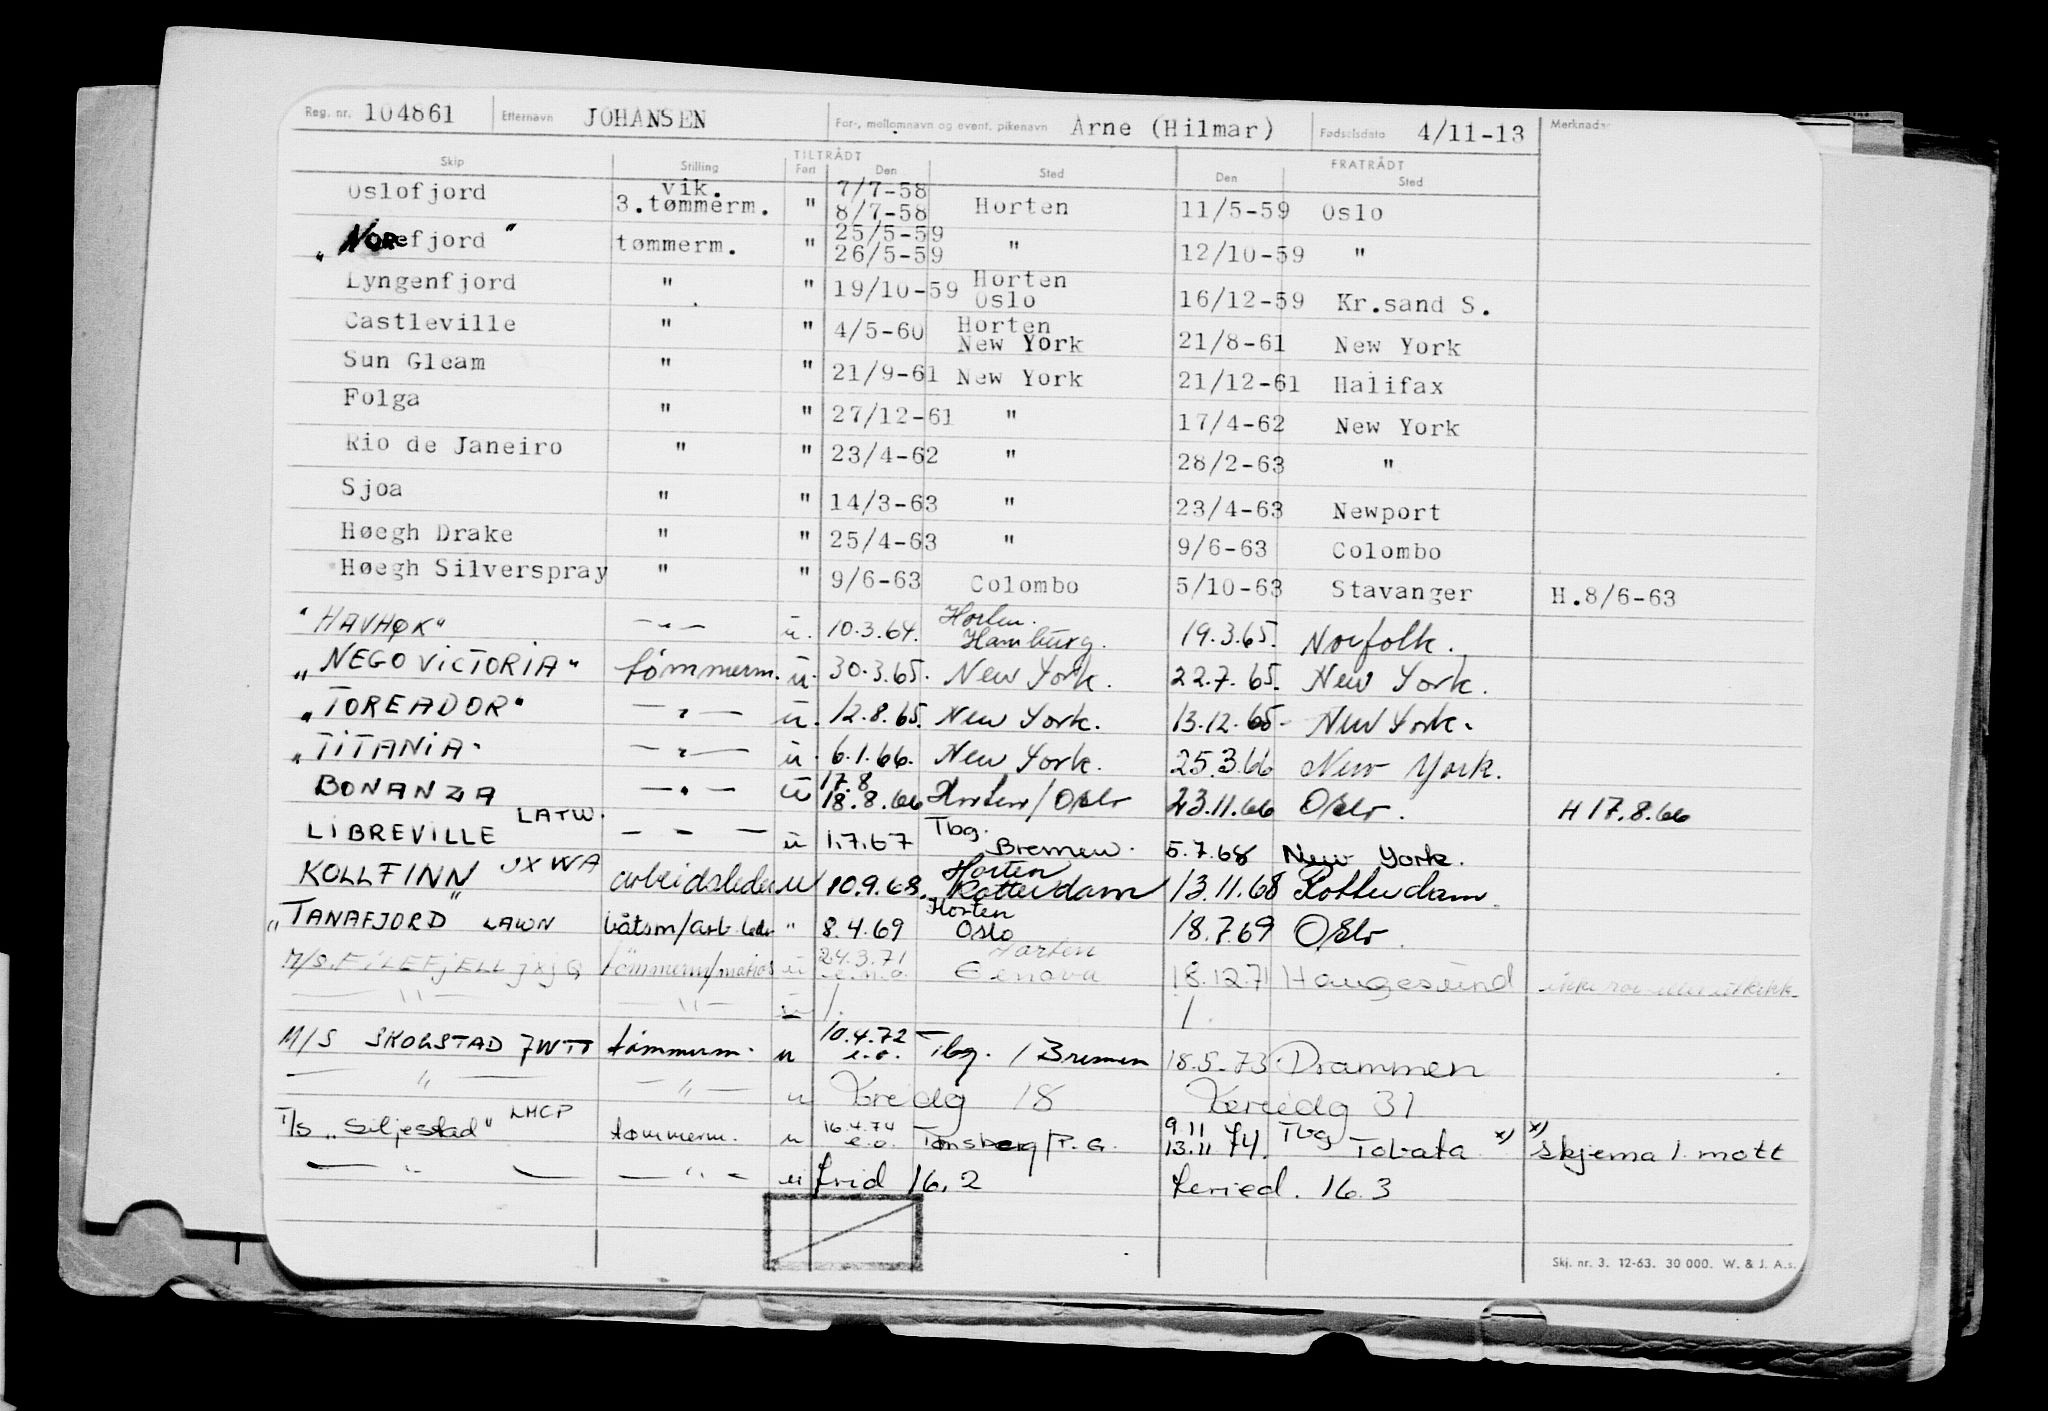 Reg. nr. 104861 Etternavn JOHANSEN For-, mellomnavn og event. pikenavn Arne (Hilmar) Fødselsdato 4/11-13 Merknader
TILTRÅDT FRATRÅDT
Skip Stilling Fart Den Sted Den Sted
Oslofjord vik. 3.tømmerm. " 7/7-58 8/7-58 Horten 11/5-59 Oslo
„NORefjord" tømmerm. " 25/5-59 26/5-59 " 12/10-59 "
Lyngenfjord " " 19/10-59 Horten Oslo 16/12-59 Kr.sand S.
Castleville " " 4/5-60 Horten New York 21/8-61 New York
Sun Gleam " " 21/9-61 New York 21/12-61 Halifax
Folga " " 27/12-61 " 17/4-62 New York
Rio de Janeiro " " 23/4-62 " 28/2-63 "
Sjoa " " 14/3-63 " 23/4-63 Newport
Høegh Drake " " 25/4-63 " 9/6-63 Colombo
Høegh Silverspray " " 9/6-63 Colombo 5/10-63 Stavanger H.8/6-63
"HAVHØK" —"— u. 10.3.64. Horten. Hamburg. 19.3.65. Norfolk.
„NEGOVICTORIA" tømmerm. u. 30.3.65. New York. 22.7.65. New York.
„TOREADOR" —"— u. 12.8.65. New York. 13.12.65. New York.
„TITANIA" —"— u. 6.1.66. New York. 25.3.66 New York.
BONANZA —"— u 17.8 18.8.66 Horten/Oslo 23.11.66 Oslo. H 17.8.66
LIBREVILLE LATW. — — — u 1.7.67 Tbg. Bremen. 5.7.68 New York.
KOLLFINN JXWA arbeidsleder u 10.9.68. Horten Rotterdam 13.11.68 Rotterdam.
„TANAFJORD" LAWN båtsm/arb leder " 8.4.69 Horten Oslo 18.7.69 Oslo.
M/S. FILEFJELL jxjQ tømmerm/matros u 24.3.71 e.m.o. Horten Genova 18.12.71 Haugesund ikke ror eller utkikk
— " — — " — u 1. 1.
M/S SKOGSTAD JWTT tømmerm. u 10.4.72 e.o. Tbg. / Bremen 18.5.73 Drammen
— " — — " — u 18 31
T/S „Siljestad" LMCP tømmerm. u 16.4.74 e.o. Tønsberg/P.G. 9.11 13.11 74. Tbg Tobata x) x) skjema 1. mott
— " — — " — u frid 16.2 feried. 16.3
Skj. nr. 3. 12-63. 30 000. W. & J. A.s.